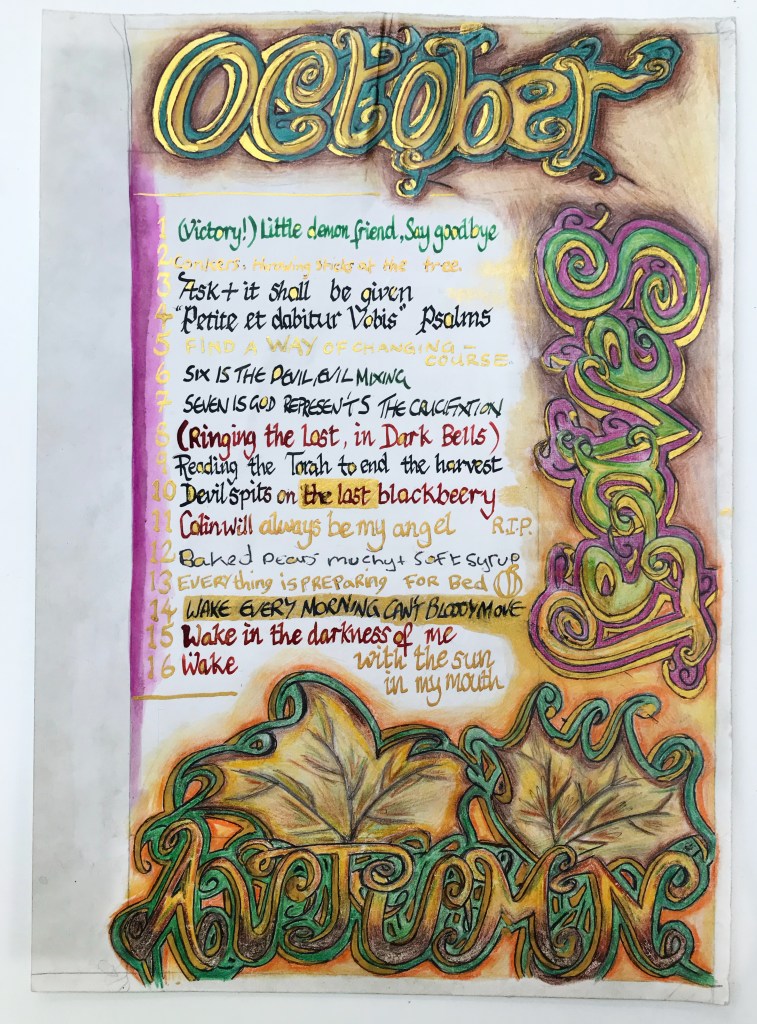 October
Leaves
1 (Victory!) Little demon friend, Say goodbye
2 Conkers: throwing sticks at the tree.
3 Ask + it shall be given
4 "Petite et dabitur Vobis" Psalms
5 FIND A WAY OF CHANGING –
COURSE
6 SIX IS THE DEVIL, EVIL MIXING
7 SEVEN IS GOD REPRESENTS THE CRUCIFIXTION
8 (Ringing the Lost, in Dark Bells)
9 Reading the Torah to end the harvest
10 Devil spits on the last blackbeery
11 Colin Will always be my angel R.I.P.
12 Baked Pears muchy + Soft Syrup
13 EVERYthing is PREPARING FOR Bed
14 WAKE EVERY MORNING CAN'T BLOODY MOVE
15 Wake in the darkness of me
16 Wake with the sun
in my mouth
AUTUMN